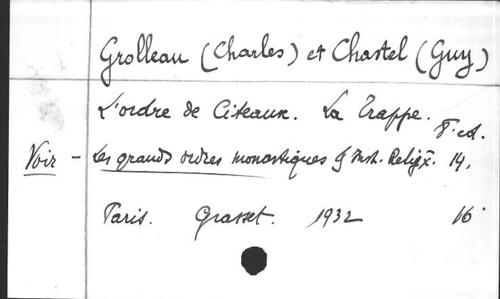 Grolleau (Charles) et Chastel (Guy)
L'ordre de Citeaux. La Trappe.
7e ed.
Voir - Les grands ordres monastiques & Inst. Religx. 14,
Paris. Grasset. 1932 16°